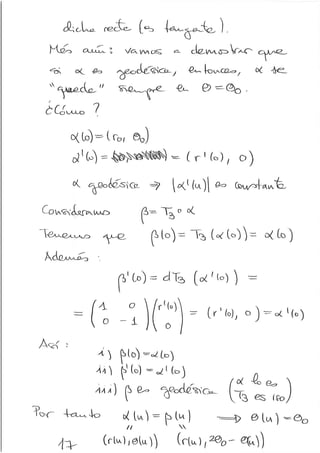 dicha recta (es tangente).
Más aún: vamos a demostrar que
si α es geodésica, entonces, α se
"quede" siempre en θ=θ₀.
¿Cómo?
α(0)=(r₀, θ₀)
α'(0)= = (r'(0), 0)
α geodésica ⇒ |α'(u)| es constante
Consideramos β= T₃∘α
Tenemos que β(0)= T₃(α(0))= α(0)
Además:
β'(0)= dT₃ (α'(0)) =
= (1 0 / 0 -1)(r'(0) / 0) = (r'(0), 0)=α'(0)
Así:
i) β(0)=α(0)
ii) β'(0)=α'(0)
iii) β es geodésica (α lo es / T₃ es iso)
Por tanto α(u)=β(u) ⟹ θ(u)=θ₀
" "
17 (r(u),θ(u)) (r(u), 2θ₀-θ(u))